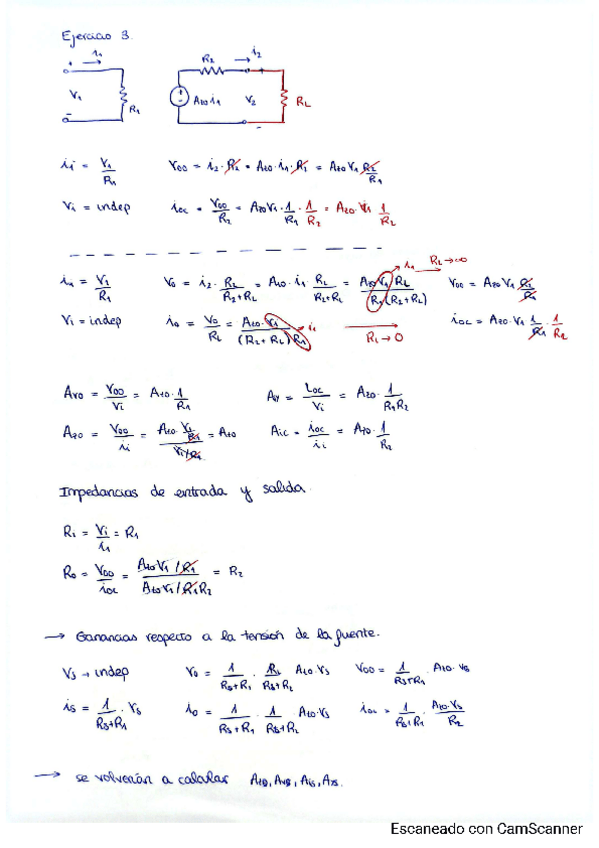 Ejercicio 3.
i₁ R₂ i₂
+ V₁ R₁ + A₂₀ i₁ + V₂ R_L
- -
i_i = V₁/R₁ V₀₀ = i₂ · R₂ = A₂₀ · i₁ · R₂ = A₂₀ V₁ R₂/R₁
V_i = indep i_oc = V₀₀/R₂ = A₂₀V₁ · 1/R₁ · 1/R₂ = A₂₀ · V₁ 1/R_L
i₁ = V₁/R₁ V₀ = i₂ · R_L/(R₂+R_L) = A₂₀ · i₁ R_L/(R₂+R_L) = A₂₀V₁ R_L/(R₁(R₂+R_L)) i₁ R_L→∞ V₀₀ = A₂₀ V₁ R₂/R₁
V_i = indep i₀ = V₀/R_L = A₂₀ · V_i/((R₂+R_L)R₁) i₁ R_L → 0 i_oc = A₂₀ · V₁ 1/R₁ · 1/R₂
A_v0 = V₀₀/V_i = A₂₀ · 1/R₁ A_y = i_oc/V_i = A₂₀ · 1/(R₁R₂)
A_z0 = V₀₀/i_i = (A₂₀ · V₁/R₁)/(V₁/R₁) = A₂₀ A_ic = i_oc/i_i = A₂₀ · 1/R₂
Impedancias de entrada y salida.
R_i = V_i/i₁ = R₁
R₀ = V₀₀/i_oc = (A₂₀V₁/R₁)/(A₂₀V₁/R₁R₂) = R₂
→ Ganancias respecto a la tensión de la fuente.
V_s → indep V₀ = 1/(R_s+R₁) · R_L/(R_L+R₂) A₂₀ V_s V₀₀ = 1/(R_s+R₁) · A₂₀ · V_s
i_s = 1/(R_s+R₁) · V_s i₀ = 1/(R_s+R₁) · 1/(R_L+R₂) A₂₀ · V_s i_oc = 1/(R_s+R₁) · A₂₀ · V_s/R₂
→ se volverán a calcular A_vs, A_is
Escaneado con CamScanner